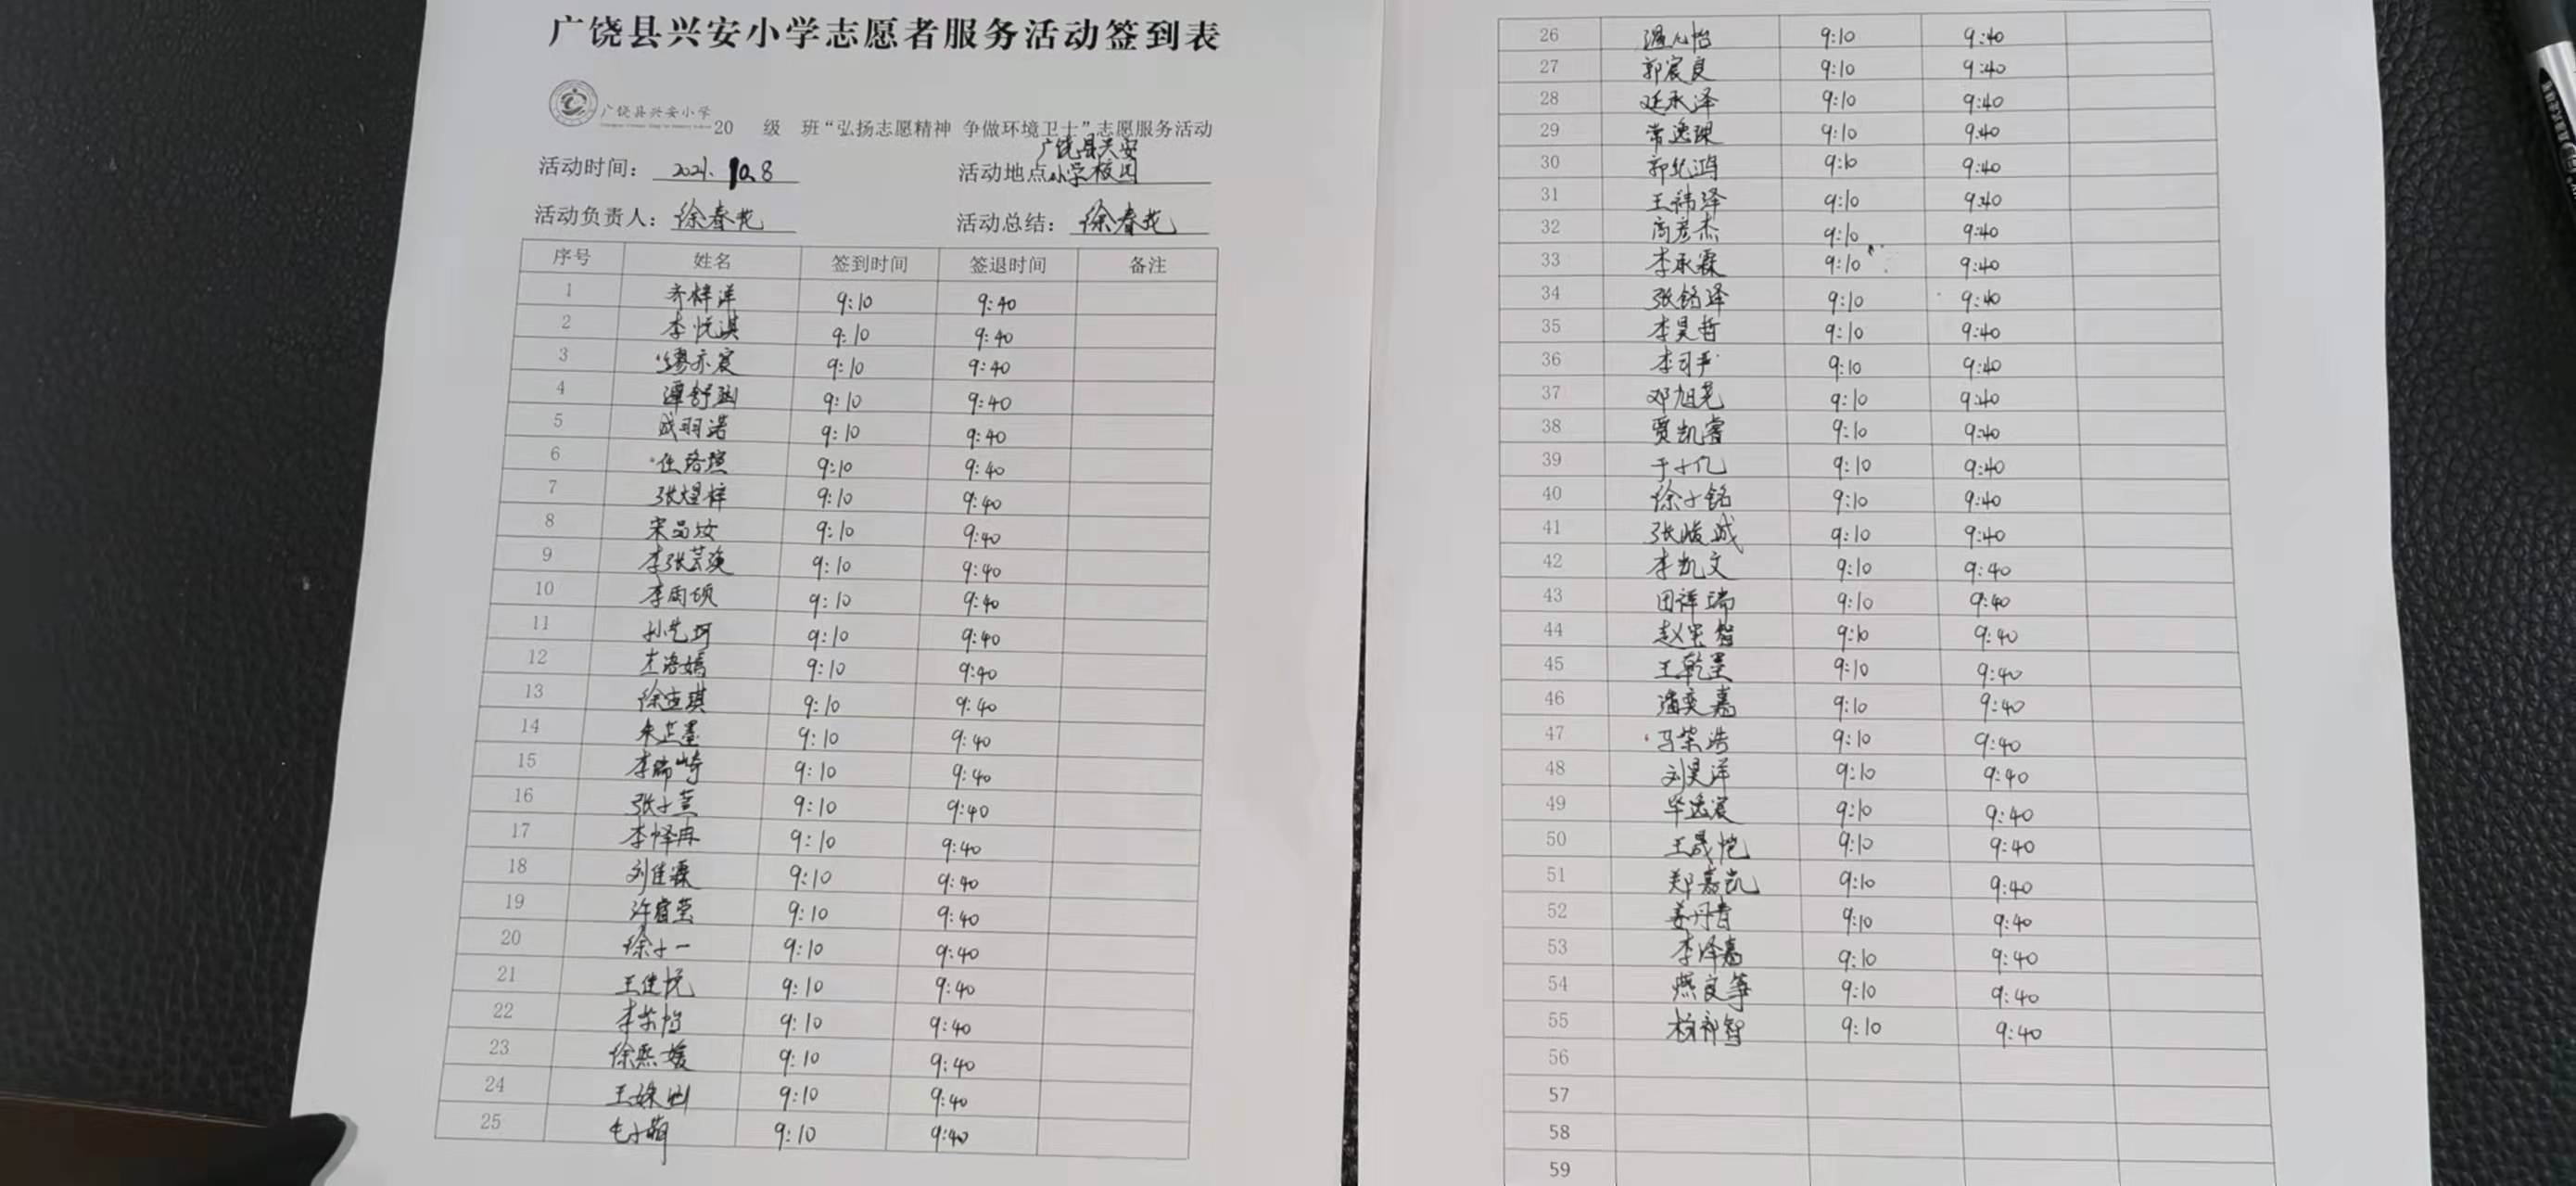 广饶县兴安小学志愿者服务活动签到表
广饶县兴安小学
20 级 班“弘扬志愿精神 争做环境卫士”志愿服务活动
活动时间：2021.10.8 活动地点 广饶县兴安小学校园
活动负责人：徐春花 活动总结：徐春花
序号 姓名 签到时间 签退时间 备注
1 齐梓洋 9:10 9:40
2 李悦淇 9:10 9:40
3 缪亦宸 9:10 9:40
4 谭舒涵 9:10 9:40
5 成羽诺 9:10 9:40
6 任珞萱 9:10 9:40
7 张煜梓 9:10 9:40
8 宋品汝 9:10 9:40
9 李张芸涣 9:10 9:40
10 李雨颀 9:10 9:40
11 孙艺珂 9:10 9:40
12 9:10 9:40
13 9:10 9:40
14 朱芷墨 9:10 9:40
15 李瑞崎 9:10 9:40
16 9:10 9:40
17 李怿冉 9:10 9:40
18 刘佳霖 9:10 9:40
19 许睿莹 9:10 9:40
20 徐子一 9:10 9:40
21 王佳悦 9:10 9:40
22 9:10 9:40
23 徐熙媛 9:10 9:40
24 9:10 9:40
25 9:10 9:40
26 温心怡 9:10 9:40
27 郭宸良 9:10 9:40
28 延承泽 9:10 9:40
29 常逸琛 9:10 9:40
30 9:10 9:40
31 王祎泽 9:10 9:40
32 高彦杰 9:10 9:40
33 李承霖 9:10 9:40
34 张铭泽 9:10 9:40
35 李昊哲 9:10 9:40
36 9:10 9:40
37 邓旭尧 9:10 9:40
38 贾凯睿 9:10 9:40
39 于子亿 9:10 9:40
40 徐子铭 9:10 9:40
41 张峻诚 9:10 9:40
42 李凯文 9:10 9:40
43 田祥瑞 9:10 9:40
44 9:10 9:40
45 王乾墨 9:10 9:40
46 潘奕嘉 9:10 9:40
47 马荣浩 9:10 9:40
48 刘昊洋 9:10 9:40
49 毕逸宸 9:10 9:40
50 王晟恺 9:10 9:40
51 郑嘉凯 9:10 9:40
52 姜丹青 9:10 9:40
53 李泽嘉 9:10 9:40
54 燕文筝 9:10 9:40
55 杨祁智 9:10 9:40
56
57
58
59